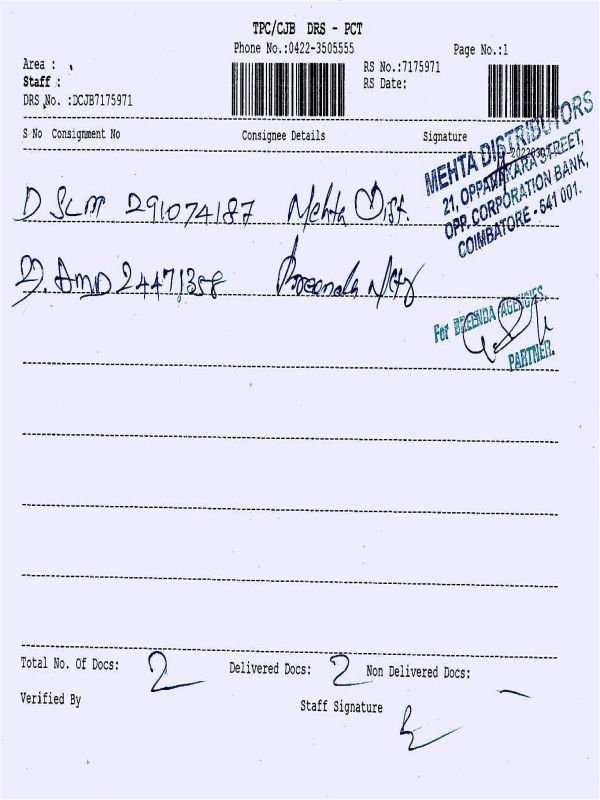 TPC/CJB DRS - PCT
Phone No.:0422-3505555 Page No.:1
Area :
RS No.:7175971
Staff :
RS Date:
DRS No. :DCJB7175971
S No Consignment No Consignee Details Signature
MEHTA DISTRIBUTORS
21, OPPANAKARA STREET,
OPP. CORPORATION BANK,
COIMBATORE - 641 001.
1) SLM 291074187 Mehta Dist.
2). AMD 24471358
For BREENDA AGENCIES
PARTNER.
Total No. Of Docs: 2 Delivered Docs: 2 Non Delivered Docs: —
Verified By Staff Signature